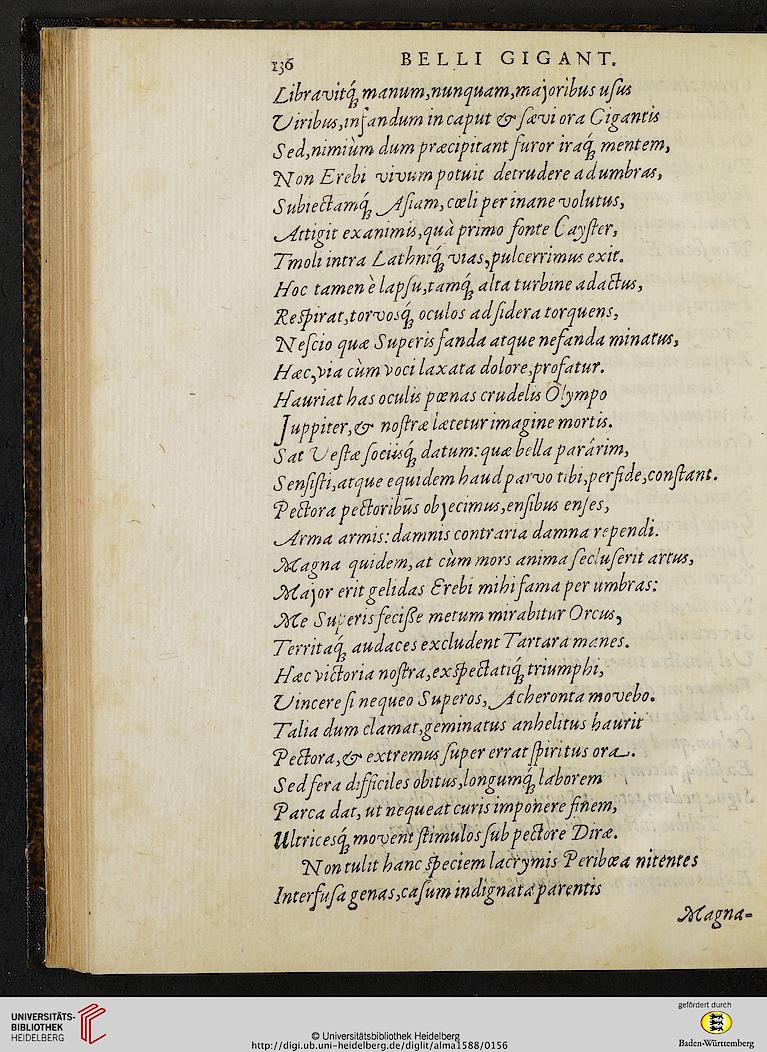 136 BELLI GIGANT.
Libravitq́; manum,nunquam,majoribus uſus
Viribus,infandum in caput & ſævi ora Gigantis
Sed,nimiùm dum præcipitant furor iraq́; mentem,
Non Erebi vivum potuit detrudere ad umbras,
Subiectamq́; Aſiam, cœli per inane volutus,
Attigit exanimis,quà primo fonte Cayſter,
Tmoli intra Lathniq́; vias,pulcerrimus exit.
Hoc tamen è lapſu,tamq́; alta turbine adactus,
Reſpirat,torvosq́; oculos ad ſidera torquens,
Neſcio quæ Superis fanda atque nefanda minatus,
Hæc,via cùm voci laxata dolore,profatur.
Hauriat has oculis pœnas crudelis Olympo
Juppiter,& noſtræ lætetur imagine mortis.
Sat Veſtæ ſociisq́; datum:quæ bella parárim,
Senſiſti,atque equidem haud parvo tibi,perfide,conſtant.
Pectora pectoribus objecimus,enſibus enſes,
Arma armis:damnis contraria damna rependi.
Magna quidem,at cùm mors anima ſecluſerit artus,
Major erit gelidas Erebi mihi fama per umbras:
Me Superis feciſſe metum mirabitur Orcus,
Territaq́; audaces excludent Tartara manes.
Hæc victoria noſtra,exſpectatiq́; triumphi,
Vincere ſi nequeo Superos, Acheronta movebo.
Talia dum clamat,geminatus anhelitus haurit
Pectora,& extremus ſuper errat ſpiritus ora.
Sed fera difficiles obitus,longumq́; laborem
Parca dat, ut nequeat curis imponere finem,
Ultricesq́; movent ſtimulos ſub pectore Diræ.
Non tulit hanc ſpeciem lacrymis Peribœa nitentes
Interfuſa genas,caſum indignata parentis
Magna-
UNIVERSITÄTS-
BIBLIOTHEK
HEIDELBERG
© Universitätsbibliothek Heidelberg
http://digi.ub.uni-heidelberg.de/diglit/alma1588/0156
gefördert durch
Baden-Württemberg